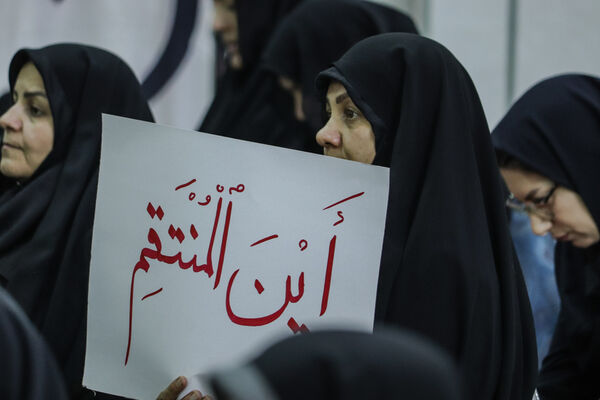 أَيْنَ الْمُنْتَقِمِ